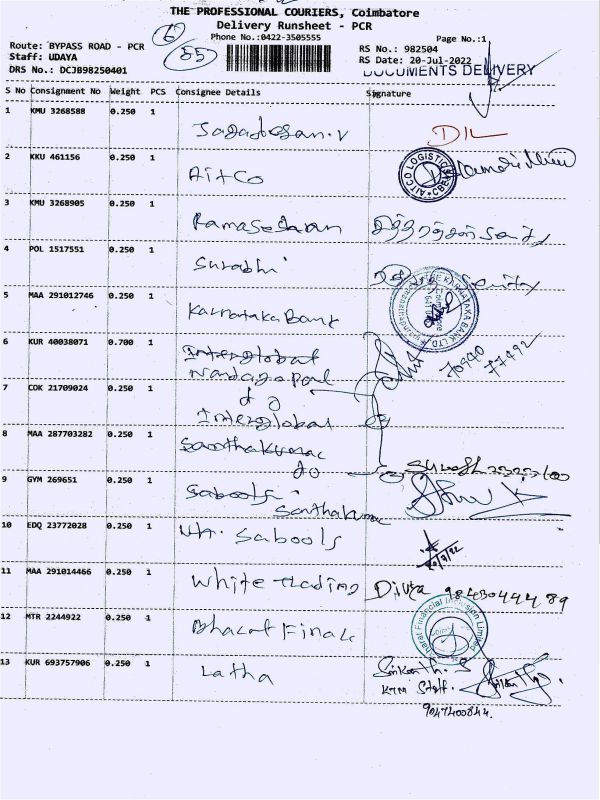 THE PROFESSIONAL COURIERS, Coimbatore
Delivery Runsheet - PCR
Phone No.:0422-3505555
Page No.:1
6
55
Route: BYPASS ROAD - PCR
RS No.: 982504
Staff: UDAYA
RS Date: 20-Jul-2022
DRS No.: DCJB98250401
DOCUMENTS DELIVERY
S No Consignment No Weight PCS Consignee Details Signature
1 KMU 3268588 0.250 1
2 KKU 461156 0.250 1 Aitco
AITCO LOGISTICS
3 KMU 3268905 0.250 1
4 POL 1517551 0.250 1 Surabhi
5 MAA 291012746 0.250 1 Karnataka Bank
KARNATAKA BANK LTD
6 KUR 40038071 0.700 1 Interglobal
Nandagopal
70940
77492
7 COK 21709024 0.250 1 Interglobal
8 MAA 287703282 0.250 1 Santhakumar
9 GYM 269651 0.250 1 Sabools
Santhakumar
10 EDQ 23772028 0.250 1 Sabools
11 MAA 291014466 0.250 1 White trading Divya 98430444 89
12 MTR 2244922 0.250 1 Bharat Finance
Bharat Financial Inclusion Limited
13 KUR 693757906 0.250 1 Latha Srikanth. S
Staff.
9047400844.